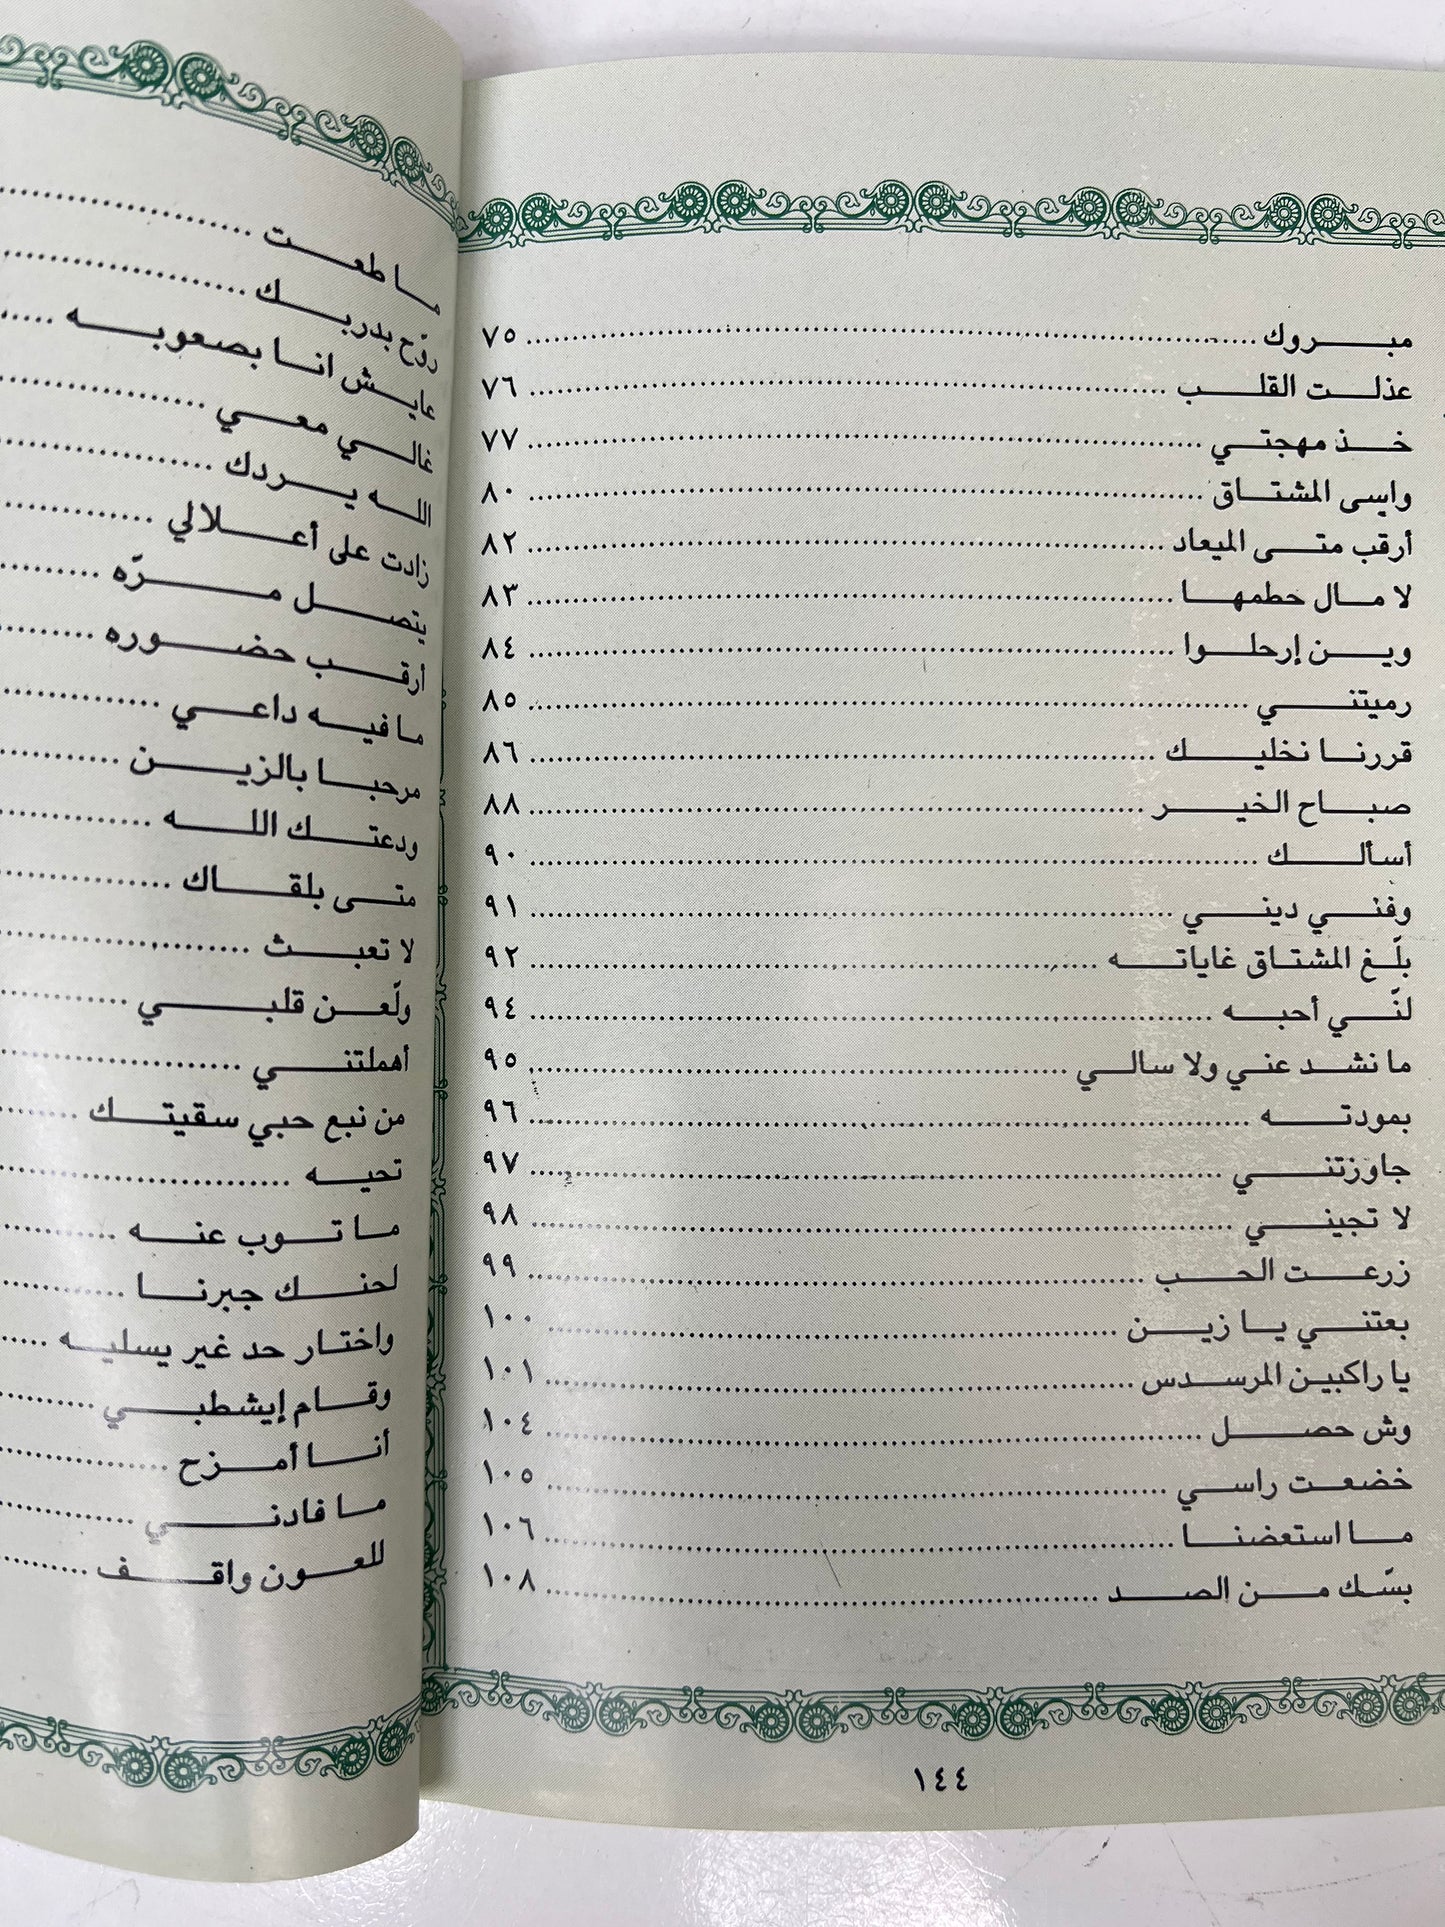 مبروك ........ ٧٥
عذلت القلب ........ ٧٦
خذ مهجتي ........ ٧٧
واسى المشتاق ........ ٨٠
أرقب متى الميعاد ........ ٨٢
لا مال حطمها ........ ٨٣
وين إرحلوا ........ ٨٤
رميتني ........ ٨٥
قررنا نخليك ........ ٨٦
صباح الخير ........ ٨٨
أسألك ........ ٩٠
وفني ديني ........ ٩١
بلّغ المشتاق غاياته ........ ٩٢
لنّي أحبه ........ ٩٤
ما نشد عني ولا سالي ........ ٩٥
بمودته ........ ٩٦
جاوزتني ........ ٩٧
لا تجيني ........ ٩٨
زرعت الحب ........ ٩٩
بعتني يا زين ........ ١٠٠
يا راكبين المرسدس ........ ١٠١
وش حصل ........ ١٠٤
خضعت راسي ........ ١٠٥
ما استعضنا ........ ١٠٦
بسّك من الصد ........ ١٠٨
١٤٤
ما طعت ........
روّح بدربك ........
عايش انا بصعوبه ........
غالي معي ........
الله يردك ........
زادت على أعلالي ........
يتصل مرّه ........
أرقب حضوره ........
ما فيه داعي ........
مرحبا بالزين ........
ودعتك الله ........
متى بلقاك ........
لا تعبث ........
ولّعن قلبي ........
أهملتني ........
من نبع حبي سقيتك ........
تحيه ........
ما توب عنه ........
لحنك جبرنا ........
واختار حد غير يسليه ........
وقام إيشطبي ........
أنا أمزح ........
ما فادني ........
للعون واقف ........